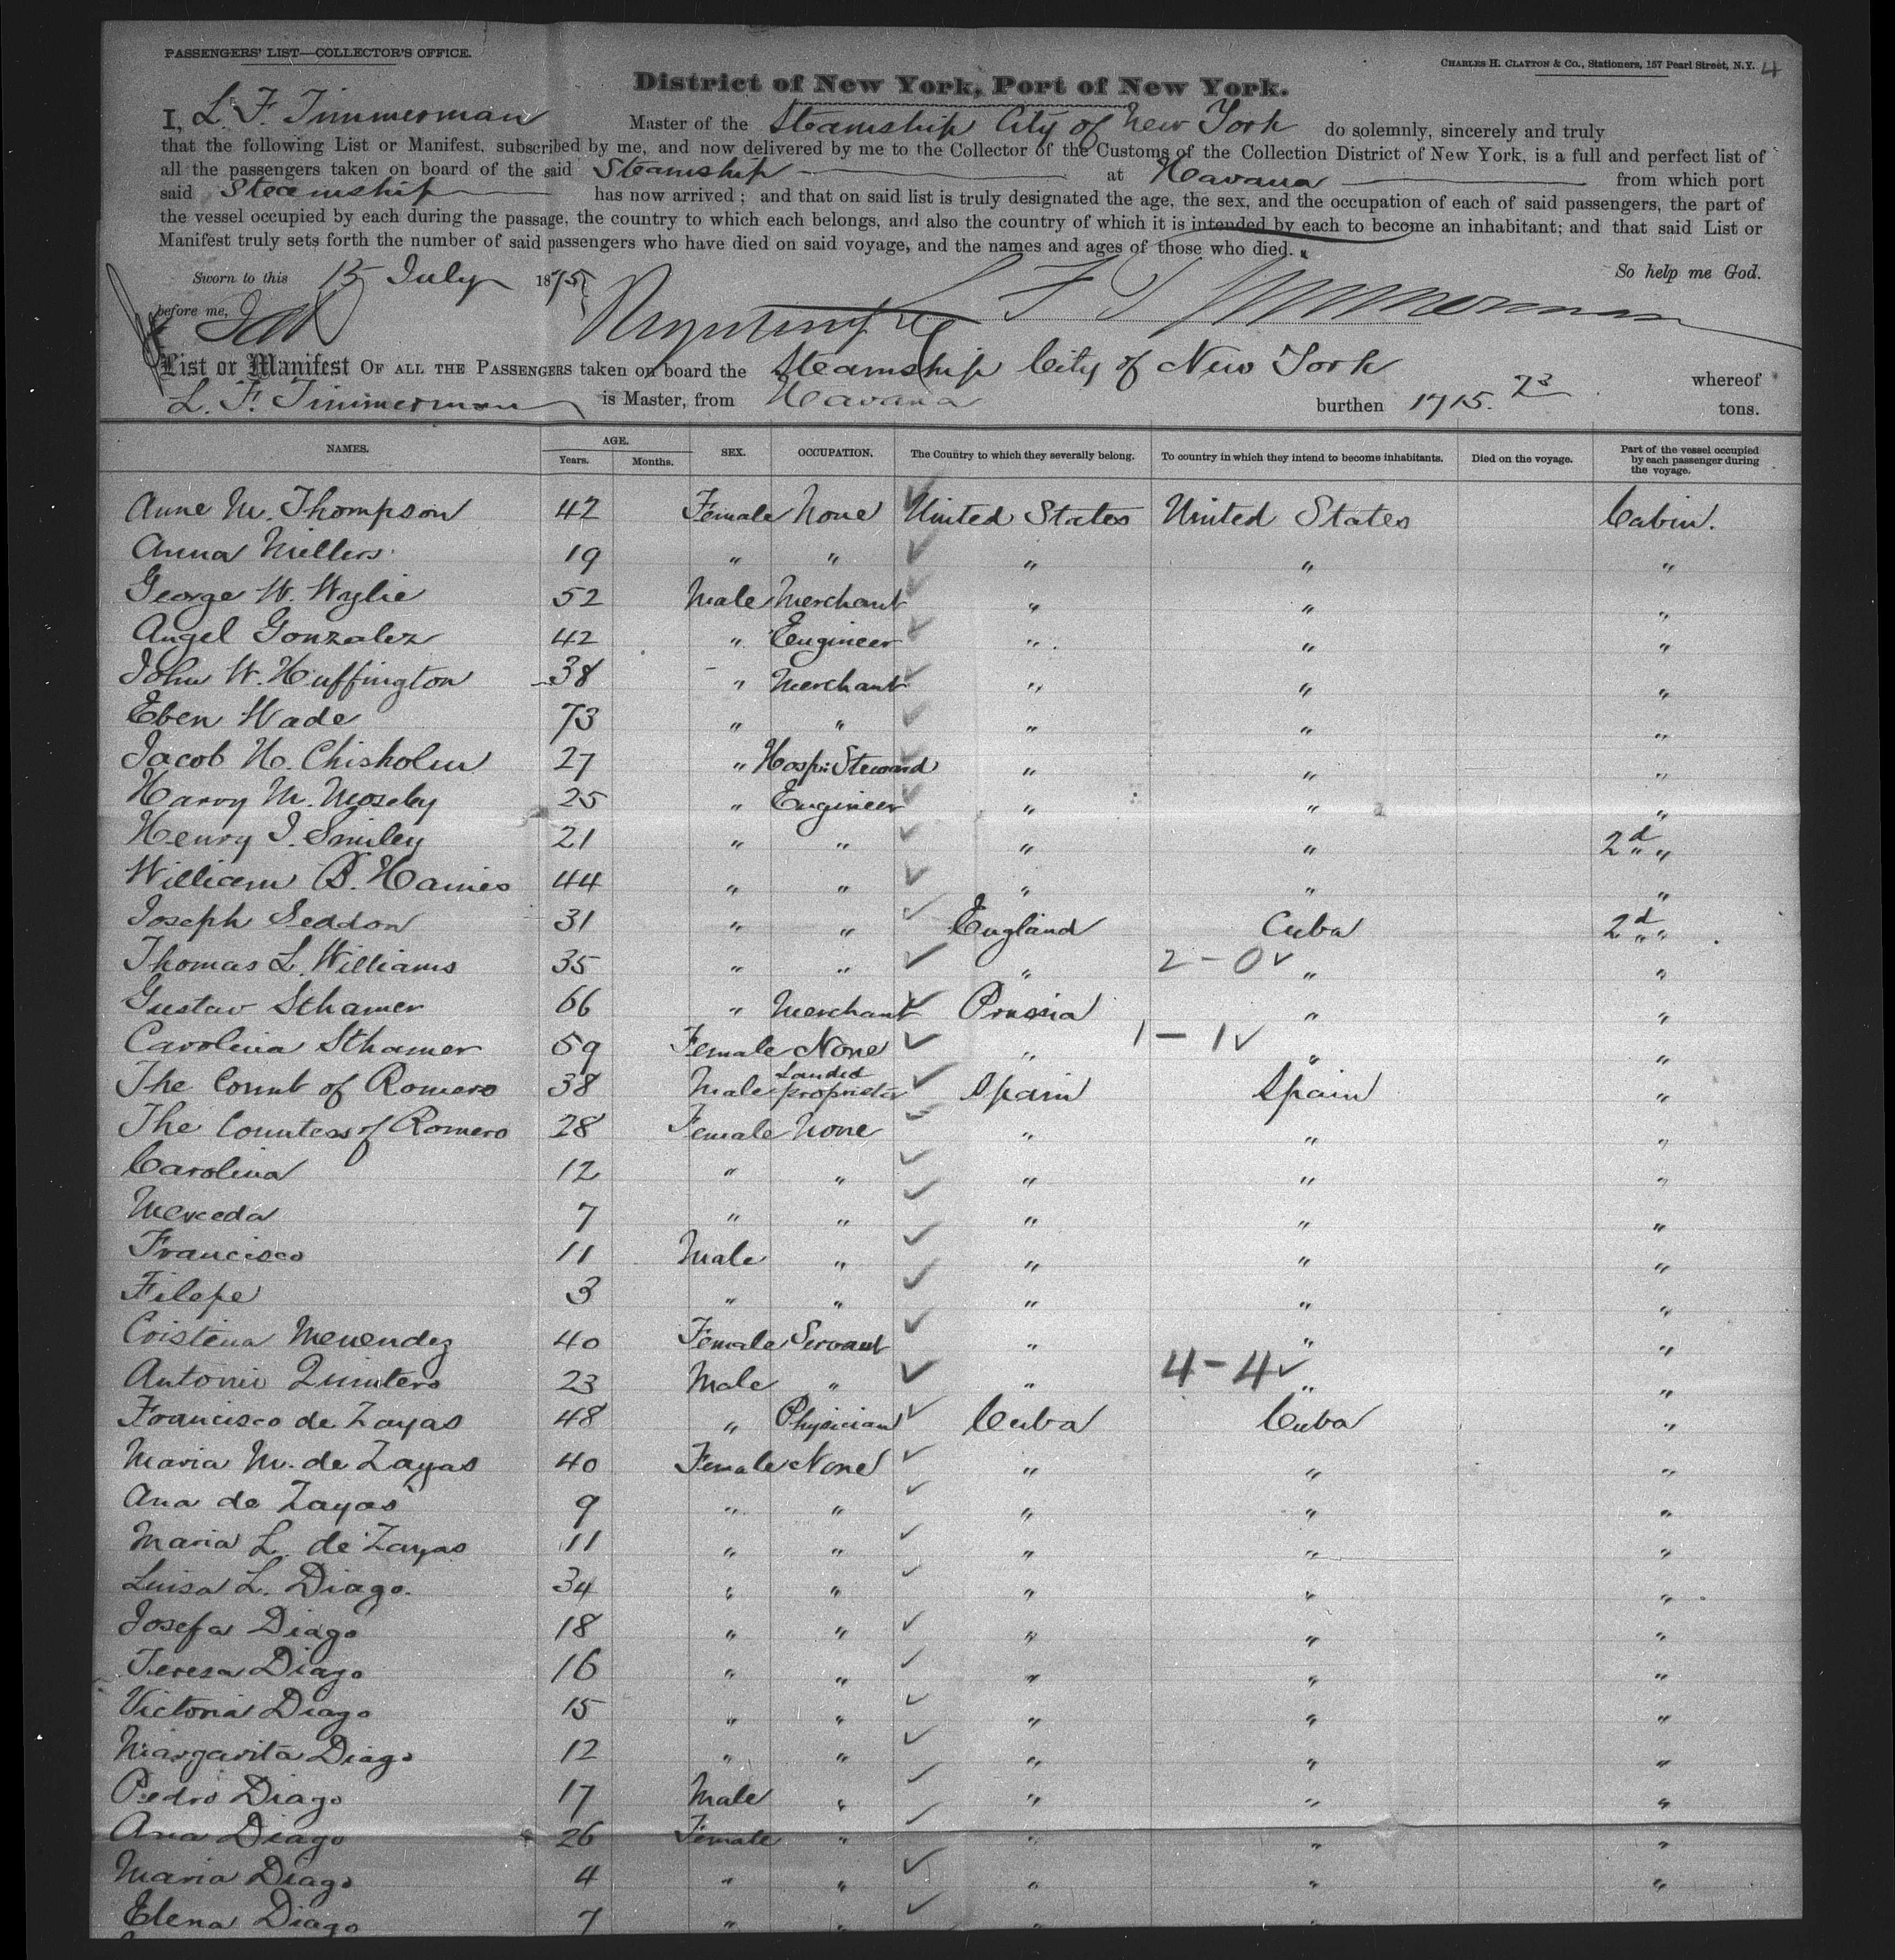 PASSENGERS' LIST—COLLECTOR'S OFFICE.
CHARLES H. CLAYTON & Co., Stationers, 157 Pearl Street, N.Y. 4
District of New York, Port of New York.
I, L. F. Timmerman Master of the Steamship City of New York do solemnly, sincerely and truly
that the following List or Manifest, subscribed by me, and now delivered by me to the Collector of the Customs of the Collection District of New York, is a full and perfect list of
all the passengers taken on board of the said Steamship at Havana from which port
said Steamship has now arrived; and that on said list is truly designated the age, the sex, and the occupation of each of said passengers, the part of
the vessel occupied by each during the passage, the country to which each belongs, and also the country of which it is intended by each to become an inhabitant; and that said List or
Manifest truly sets forth the number of said passengers who have died on said voyage, and the names and ages of those who died.
So help me God.
Sworn to this 15 July 1875
before me,
L F Timmerman
List or Manifest OF ALL THE PASSENGERS taken on board the Steamship City of New York whereof
L. F. Timmerman is Master, from Havana burthen 1715. 73 tons.
NAMES. AGE. Years. Months. SEX. OCCUPATION. The Country to which they severally belong. To country in which they intend to become inhabitants. Died on the voyage. Part of the vessel occupied by each passenger during the voyage.
Anne M. Thompson 42 Female None United States United States Cabin.
Anna Millers 19 " " " " "
George W. Wylie 52 Male Merchant " " "
Angel Gonzalez 42 " Engineer " " "
John W. Huffington 38 " Merchant " " "
Eben Wade 73 " " " " "
Jacob H. Chisholm 27 " Hosp: Steward " " "
Harvy M. Moseby 25 " Engineer " " "
Henry I. Smiley 21 " " " " 2d " "
William B. Haines 44 " " " " "
Joseph Seddon 31 " " England Cuba 2d " "
Thomas L. Williams 35 " " " 2-0 " "
Gustav Sthamer 66 " Merchant Prussia " "
Carolina Sthamer 59 Female None " 1-1 " "
The Count of Romero 38 Male Landed proprietor Spain Spain "
The Countess of Romero 28 Female None " " "
Carolina 12 " " " " "
Merceda 7 " " " " "
Francisco 11 Male " " " "
Filepe 3 " " " " "
Cristina Menendez 40 Female Servant " " "
Antonio Quintero 23 Male " " 4-4 " "
Francisco de Zayas 48 " Physician Cuba Cuba "
Maria M. de Zayas 40 Female None " " "
Ana de Zayas 9 " " " " "
Maria L. de Zayas 11 " " " " "
Luisa L. Diago. 34 " " " " "
Josefa Diago 18 " " " " "
Teresa Diago 16 " " " " "
Victoria Diago 15 " " " " "
Margarita Diago 12 " " " " "
Pedro Diago 17 Male " " " "
Ana Diago 26 Female " " " "
Maria Diago 4 " " " " "
Elena Diago 7 " " " "